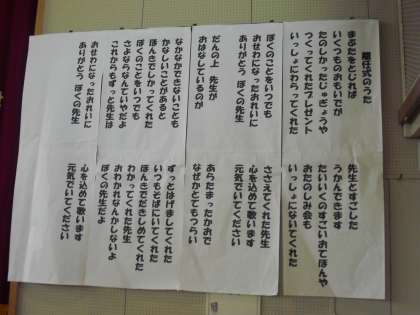 離任式のうた
まぶたをとじれば
いくつものおもいでが
たのしかったじゅぎょうや
つくってくれたプレゼント
いっしょにわらってくれた
ぼくのことをいつでも
おせわになったおれいに
ありがとう ぼくの先生
だんの上 先生が
おはなしているのが
なかなかできないことも
かなしいことがあると
ほんきでしかってくれた
ぼくのことをいつでも
さよならなんていやだよ
これからもずっと先生は
おせわになったおれいに
ありがとう ぼくの先生
先生とすごした
うかんできます
たいいくのすごいおてほんや
おたのしみ会も
いっしょにないてくれた
ささえてくれた先生
心を込めて歌います
元気でいてください
あらたまったかおで
なぜかとてもつらい
ずっとはげましてくれた
いつもとばにいてくれた
ほんきでだきしめてくれた
わかってくれた先生
おわかれなんかしないよ
ぼくの先生だよ
心を込めて歌います
元気でいてください